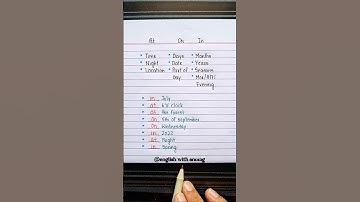 At On In
• Time • Days • Months
• Night • Date • Years
• Location • Part of • Seasons
Day • Mor/Aft/
Evening
• in July
• at 6'o clock
• at the forest
• on 5th of september
• on Wednesday
• in 2022
• at Night
• in Spring
@english with anuug